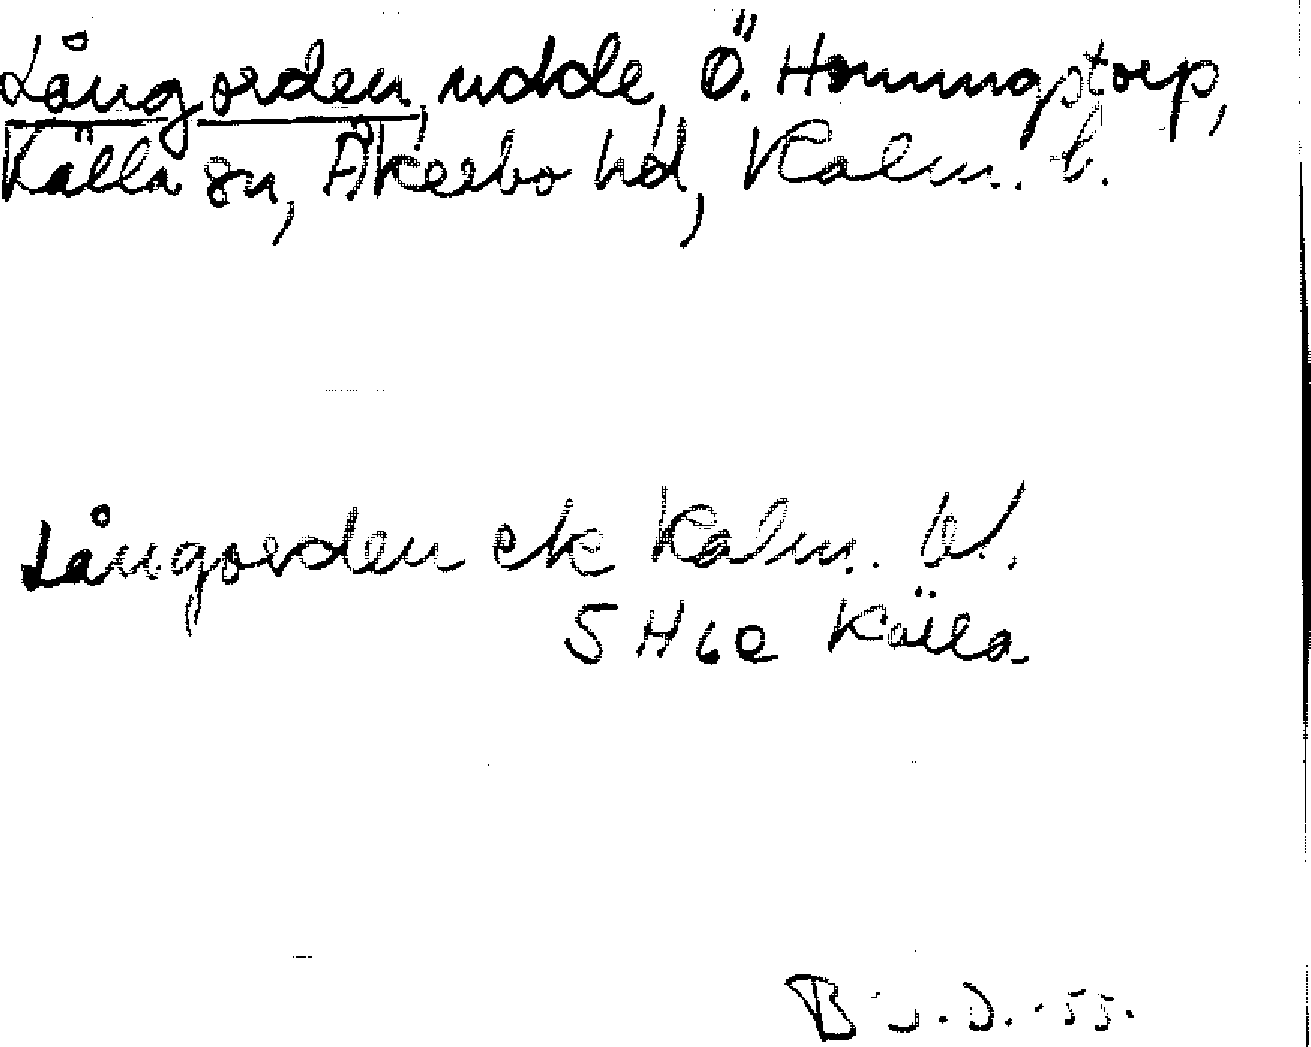 Långorden, udde, Ö. Horningstorp,
Källa sn, Åkerbo hd, Kalm. l.
Långorden ek Kalm. bl.
5 H 6e Källa
B J. D. -55.